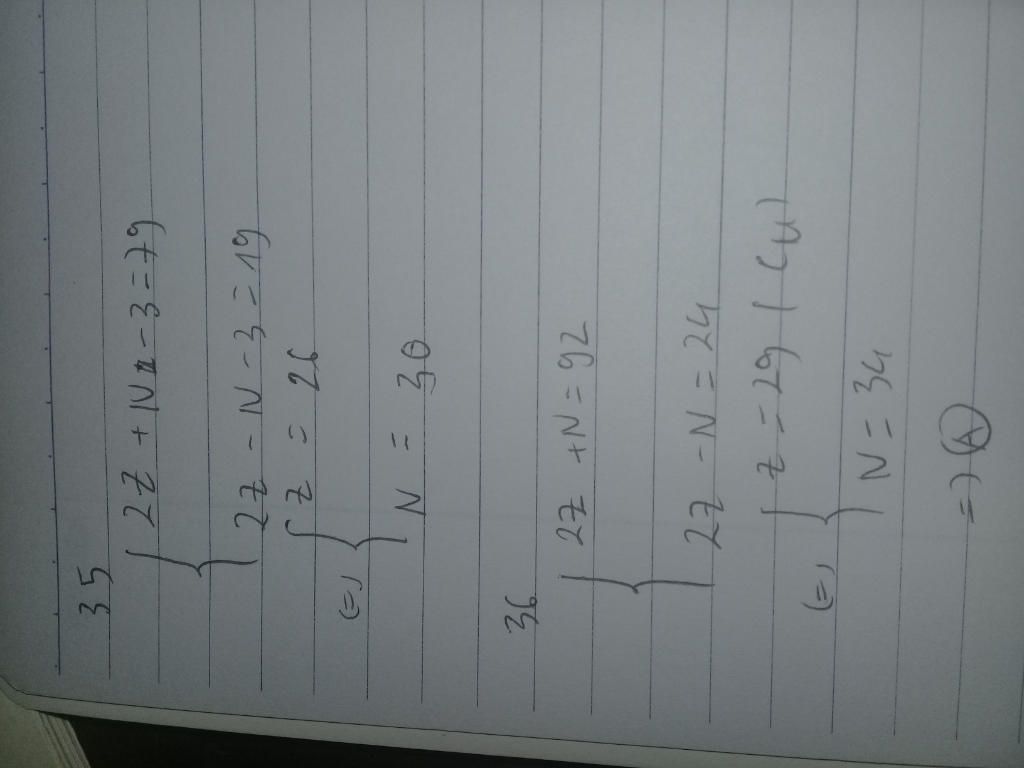 35
{ 2Z + N - 3 = 79
2Z - N - 3 = 19
(=) { Z = 26
N = 30
36
{ 2Z + N = 92
2Z - N = 24
(=) { Z = 29 ( Cu )
N = 34
=> A